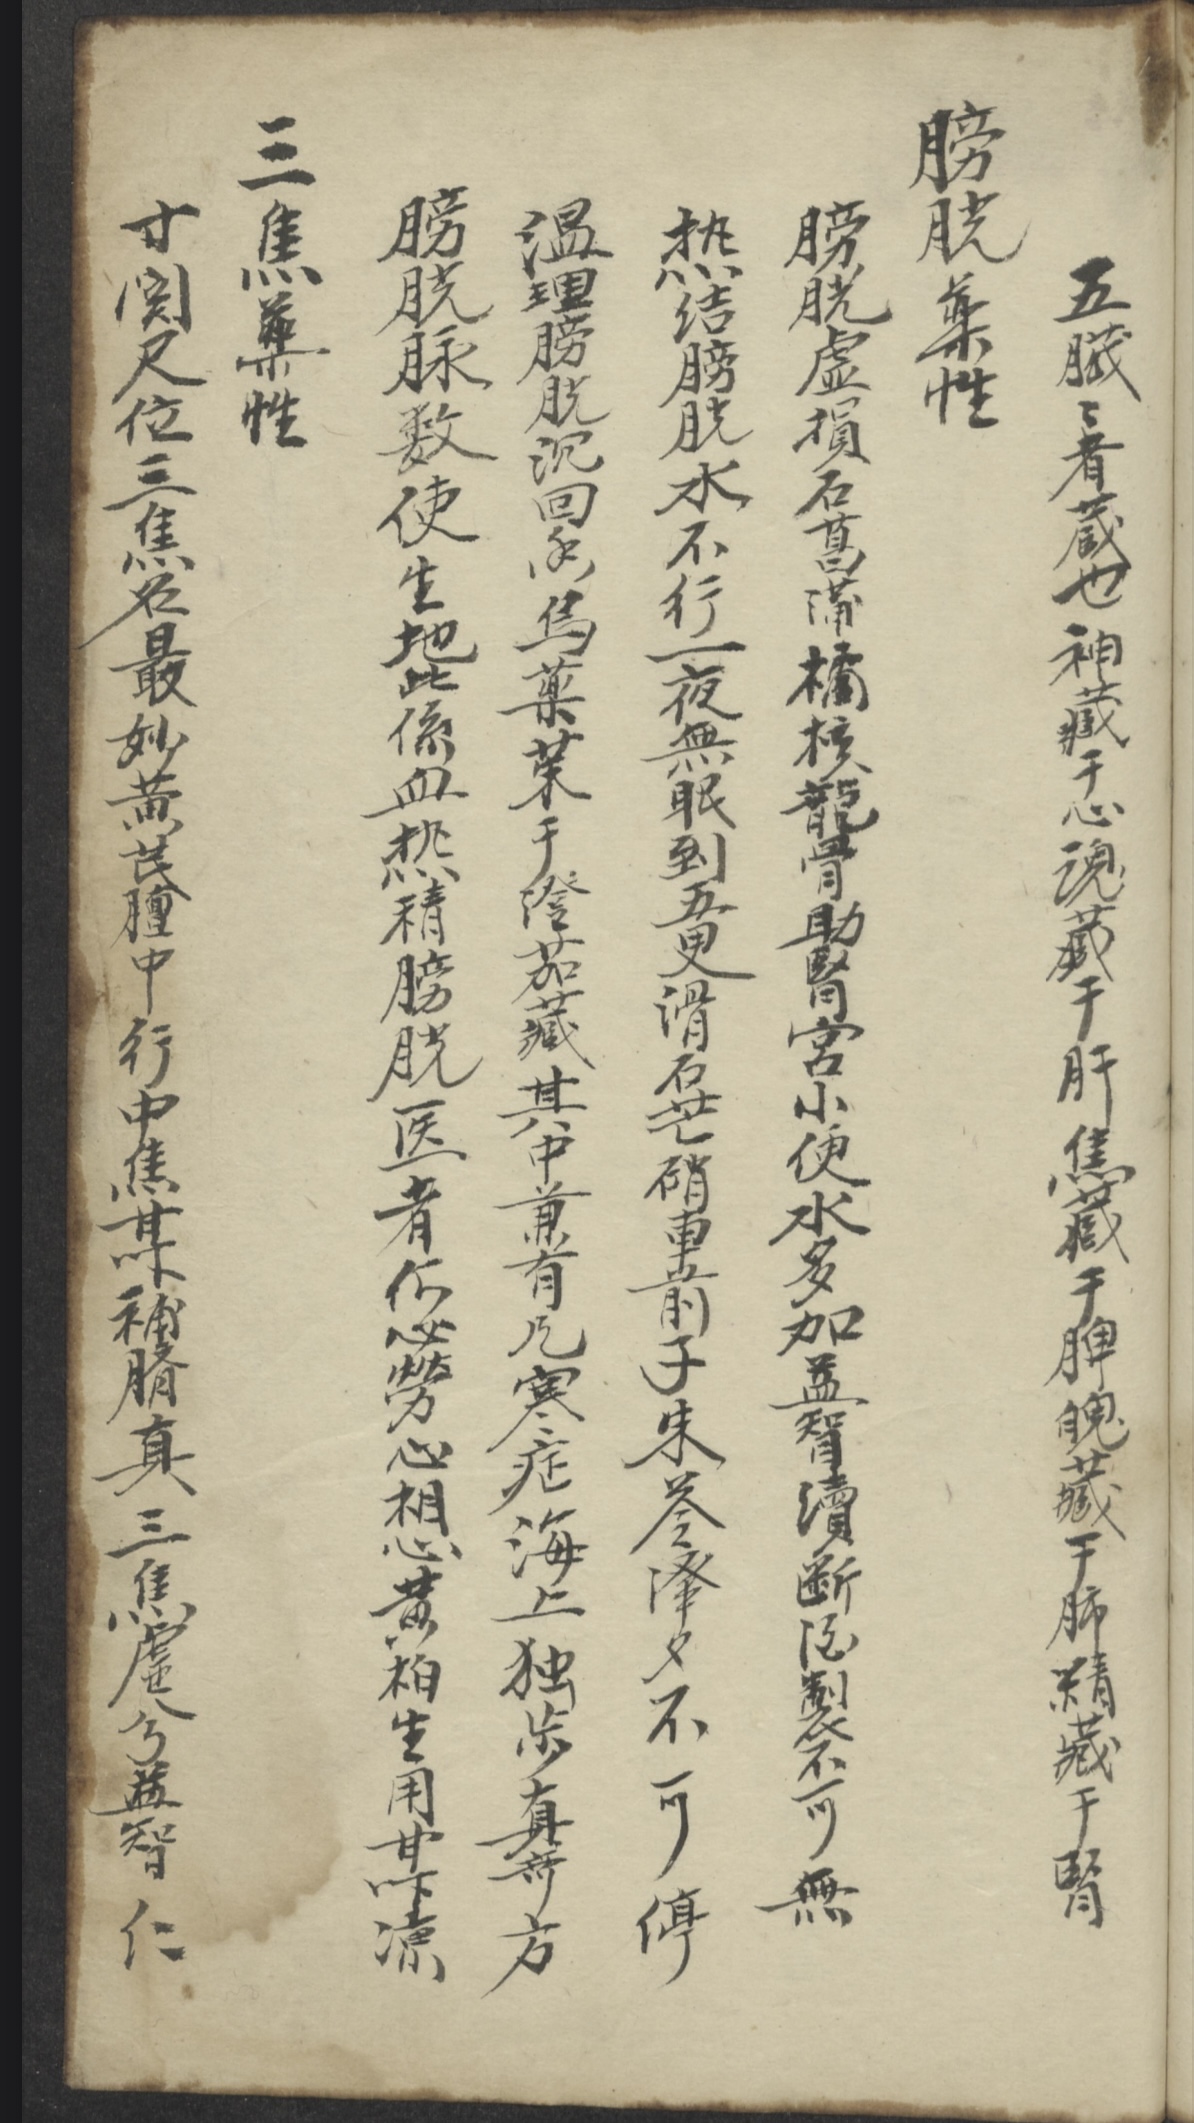 五臟〻者蔵也神藏于心魂藏于肝焦藏于脾魄藏于肺精藏于腎
膀胱藥性
膀胱虛損石菖蒲橘核龍骨助腎宮小便水多加益智續斷酒製不可無
热结膀胱水不行一夜無眠到五更滑石芒硝車前子朱苓澤夕不可停
溫理膀胱沉回香烏藥茱于澄茄藏其中兼有凡寒症海上独步真奇方
膀胱脉数使生地此係血热積膀胱医者何必勞心想黄柏生用甘草凉
三焦藥性
寸関尺位三焦名最妙黄芪膻中行中焦某补臍真三焦虛兮益智仁